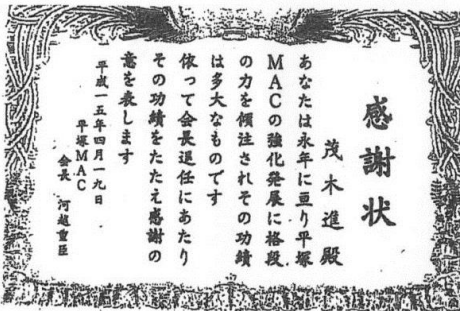 感謝状
茂木進殿
あなたは永年に亘り平塚
MACの強化発展に格段
の力を傾注されその功績
は多大なものです
依って会長退任にあたり
その功績をたたえ感謝の
意を表します
平成一五年四月一九日
平塚MAC
会長 河越重臣